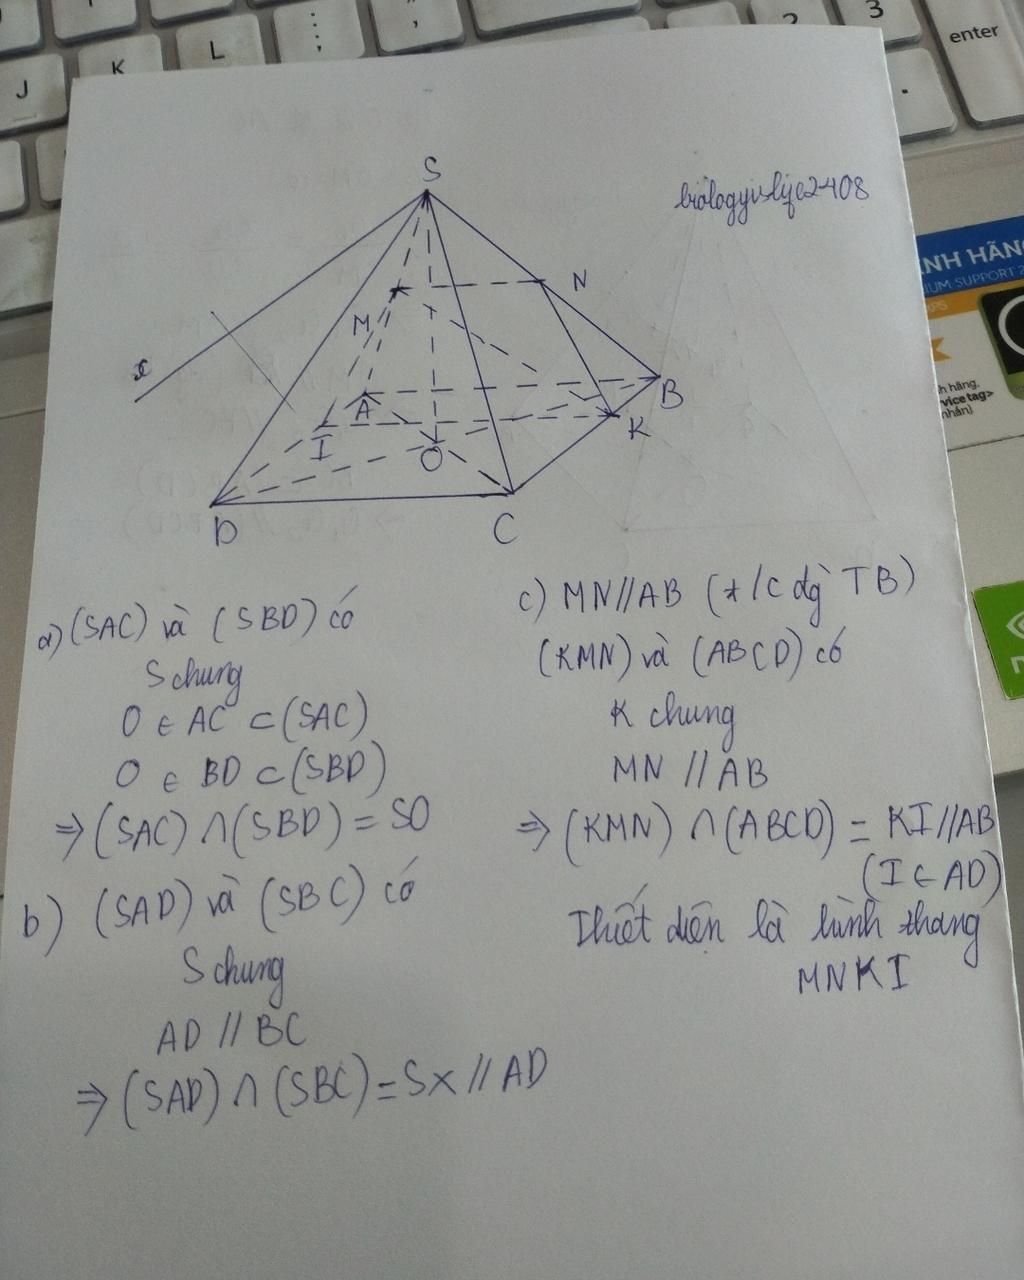 J
K
L
:
;
"
,
2
3
enter
.
biologyislife2408
NH HÃNG
IUM SUPPORT
hính hãng,
rvice tag>
nhân)
S
N
M
x
A
B
I
K
O
D
C
a) (SAC) và (SBD) có
S chung
O ∈ AC ⊂ (SAC)
O ∈ BD ⊂ (SBD)
⇒ (SAC) ∩ (SBD) = SO
b) (SAD) và (SBC) có
S chung
AD // BC
⇒ (SAD) ∩ (SBC) = Sx // AD
c) MN // AB (t/c đg` TB)
(KMN) và (ABCD) có
K chung
MN // AB
⇒ (KMN) ∩ (ABCD) = KI // AB
(I ∈ AD)
Thiết diện là hình thang
MNKI